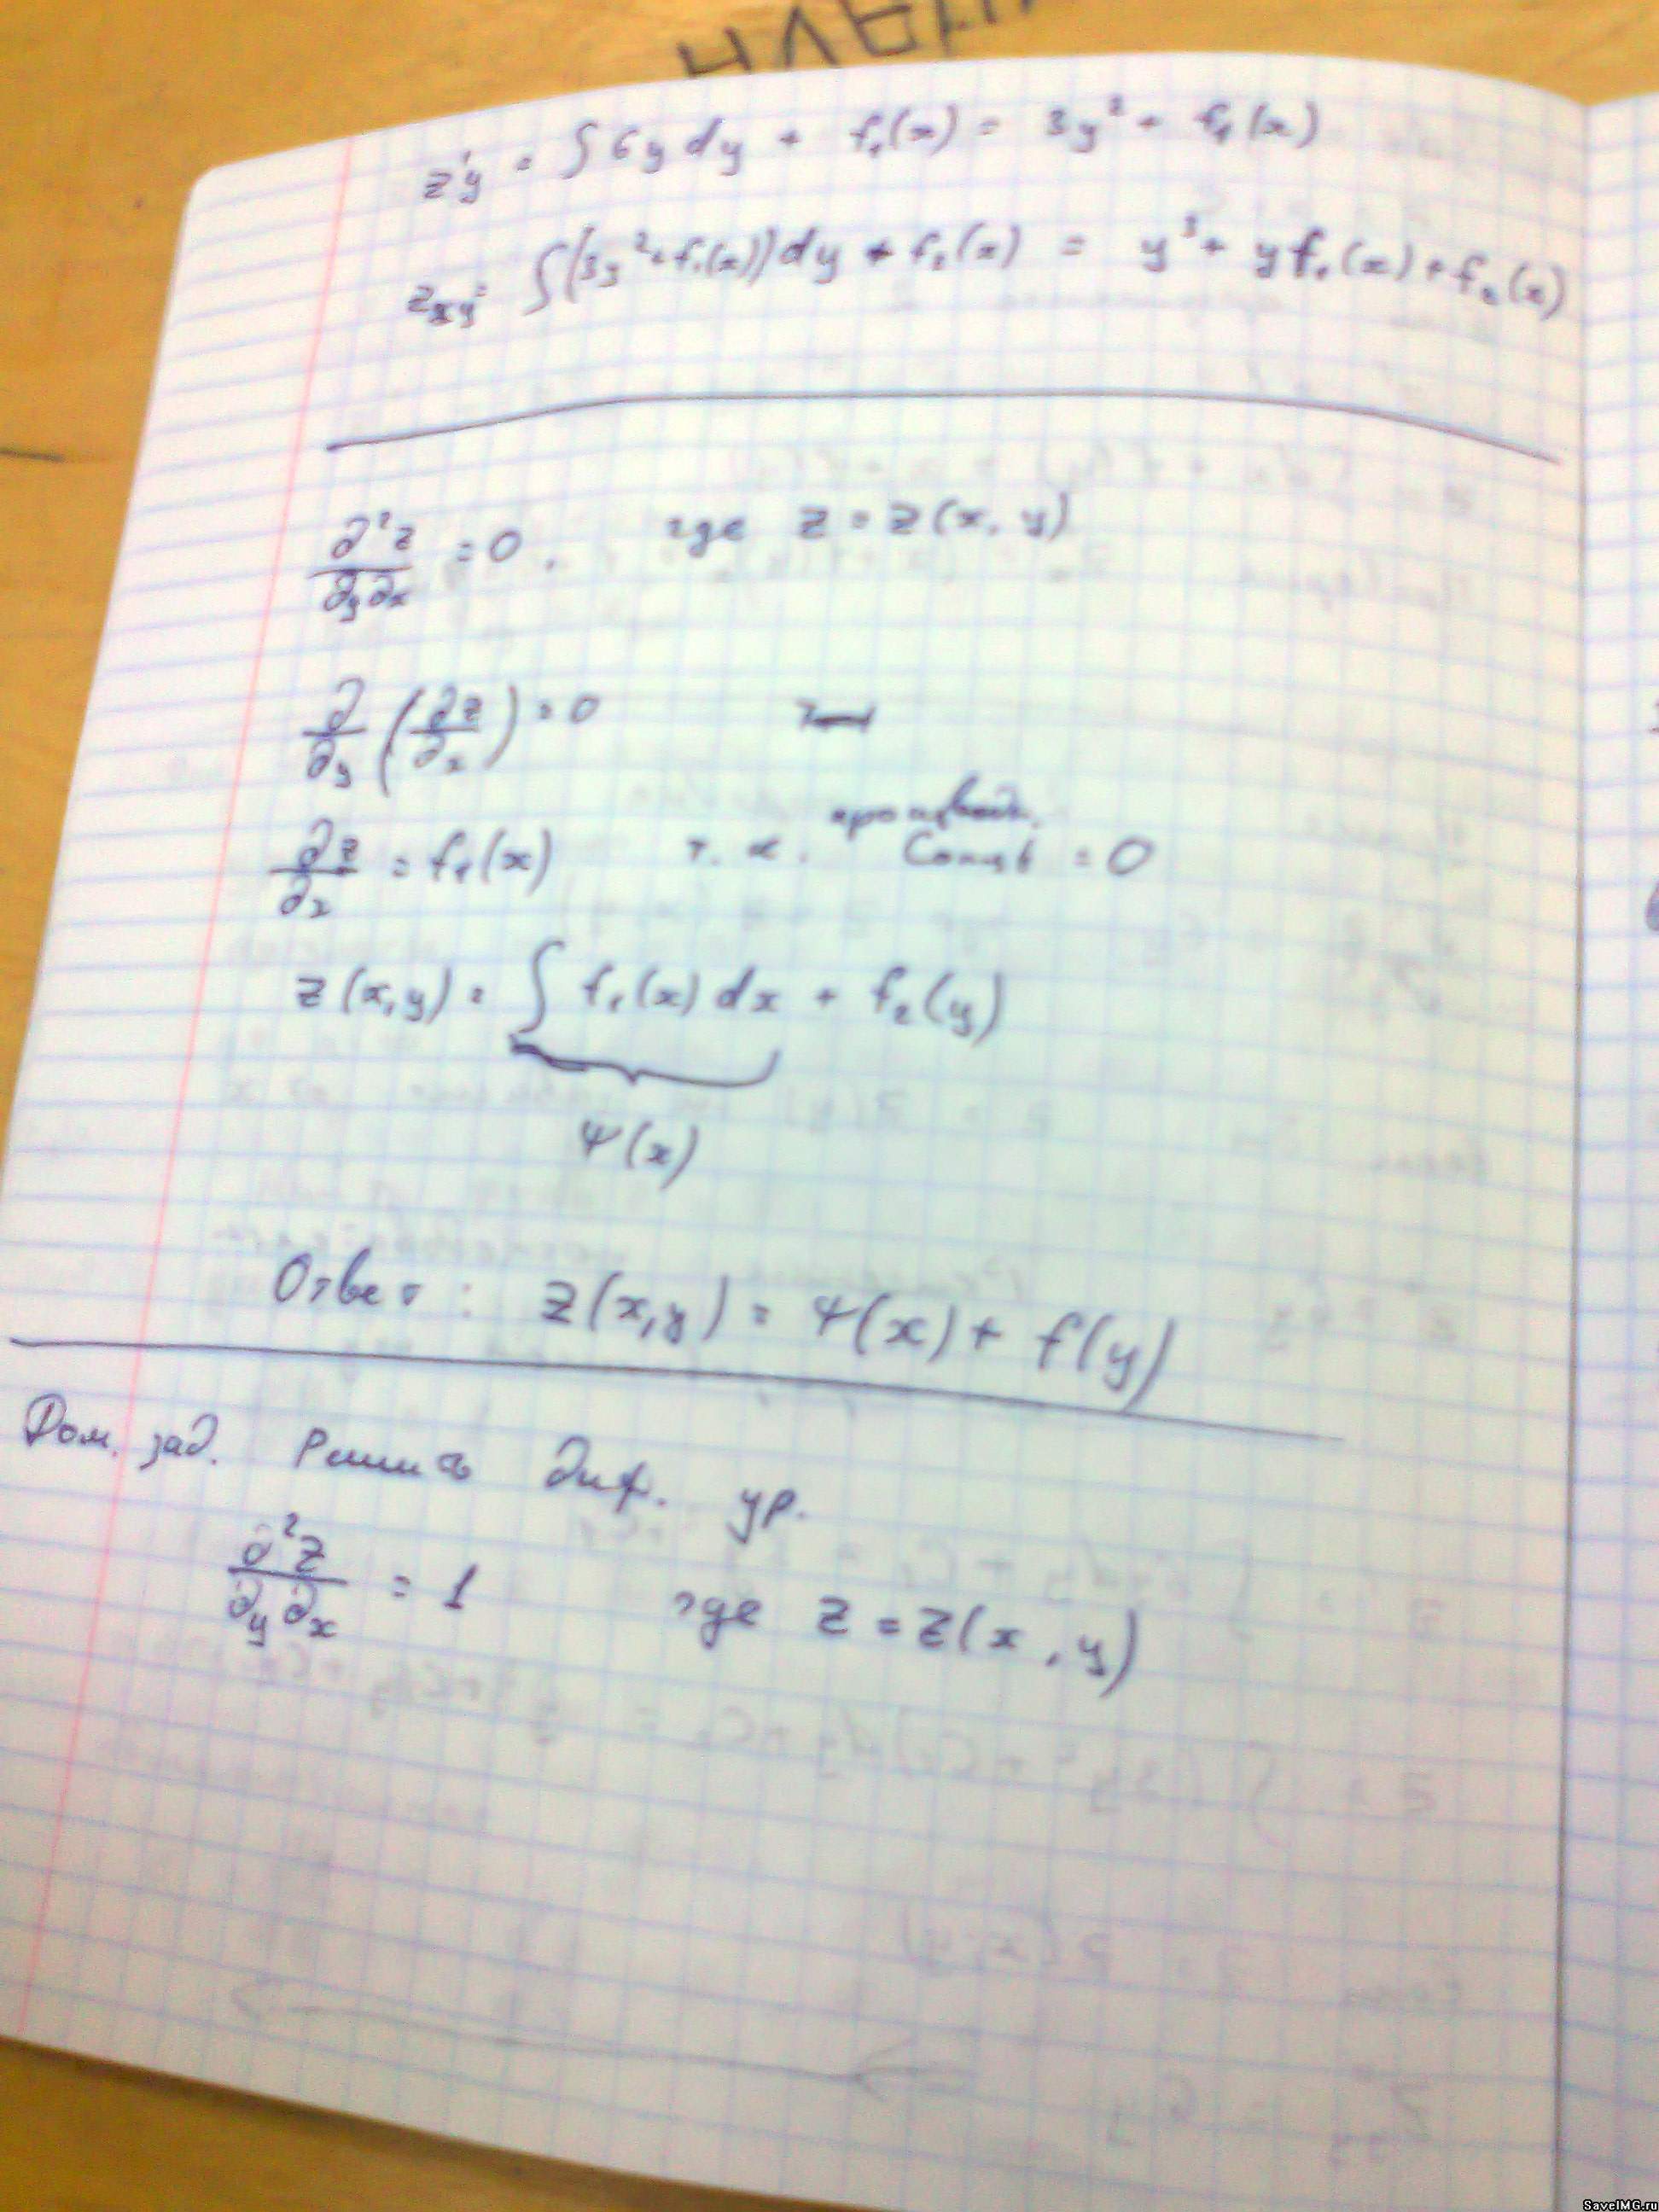 z'y = ∫ 6y dy + f₁(x) = 3y² + f₁(x)
zxy = ∫(3y² + f₁(x))dy + f₂(x) = y³ + y f₁(x) + f₂(x)
∂²z/∂y∂x = 0. где z = z(x, y)
∂/∂y (∂z/∂x) = 0
∂z/∂x = f₁(x) т. к. производн. Const = 0
z(x,y) = ∫ f₁(x) dx + f₂(y)
Ψ(x)
Ответ: z(x,y) = Ψ(x) + f(y)
Дом. зад. Решить диф. ур.
∂²z/∂y∂x = 1 где z = z(x, y)
SaveIMG.ru